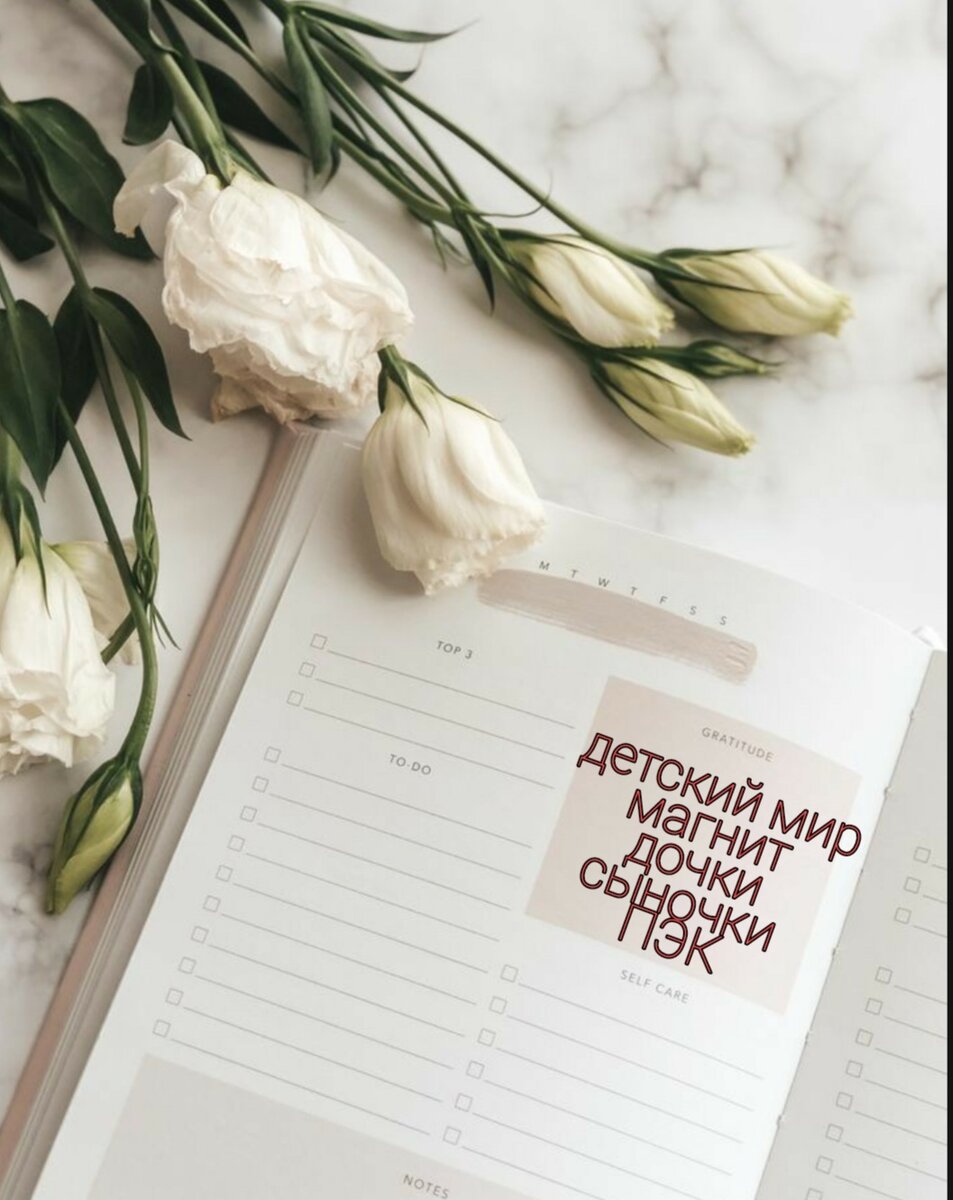 M T W T F S S
TOP 3
GRATITUDE
детский мир
магнит
дочки
сыночки
ПЭК
TO-DO
SELF CARE
NOTES